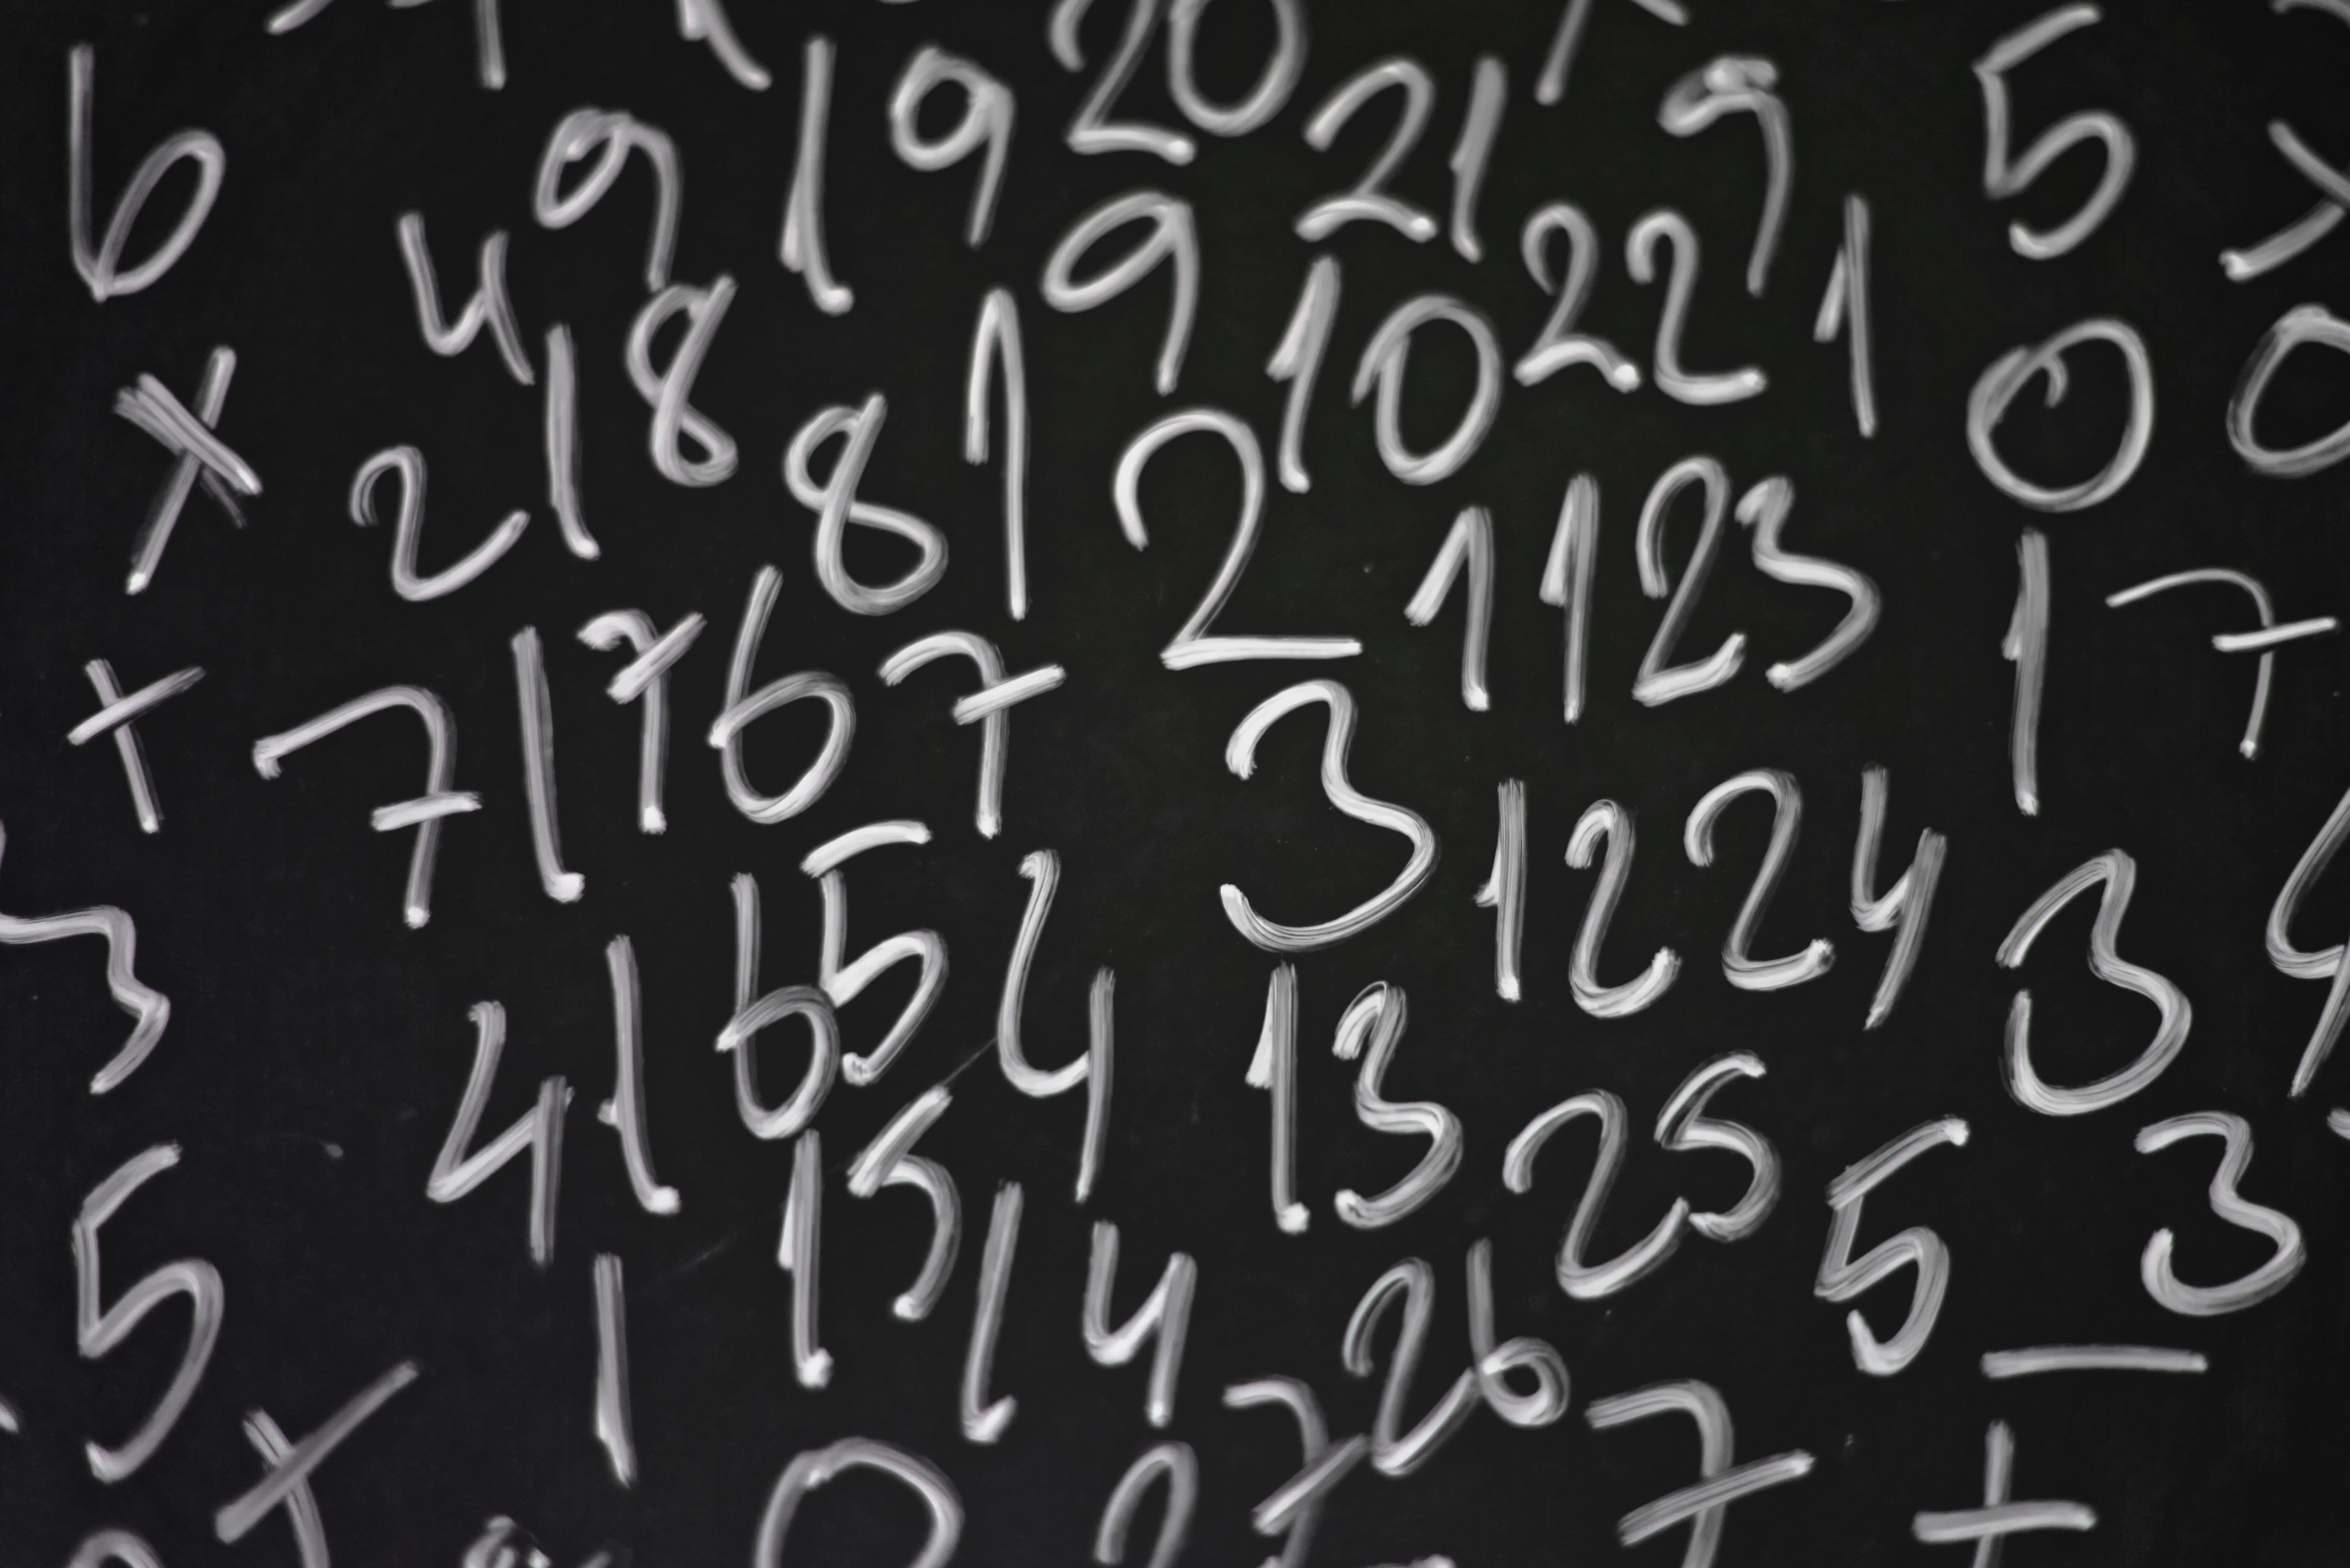 20
6 9 1 9 21 9 5
4 18 9 10 22 1 0 0
x 2 8 1 2 11 1 23 1 7
+ 7 1 7 6 7 3 12 24 3
3 4 1 6 5 4 13 25 5 3
5 1 15 14 26 −
+ 27 7 +